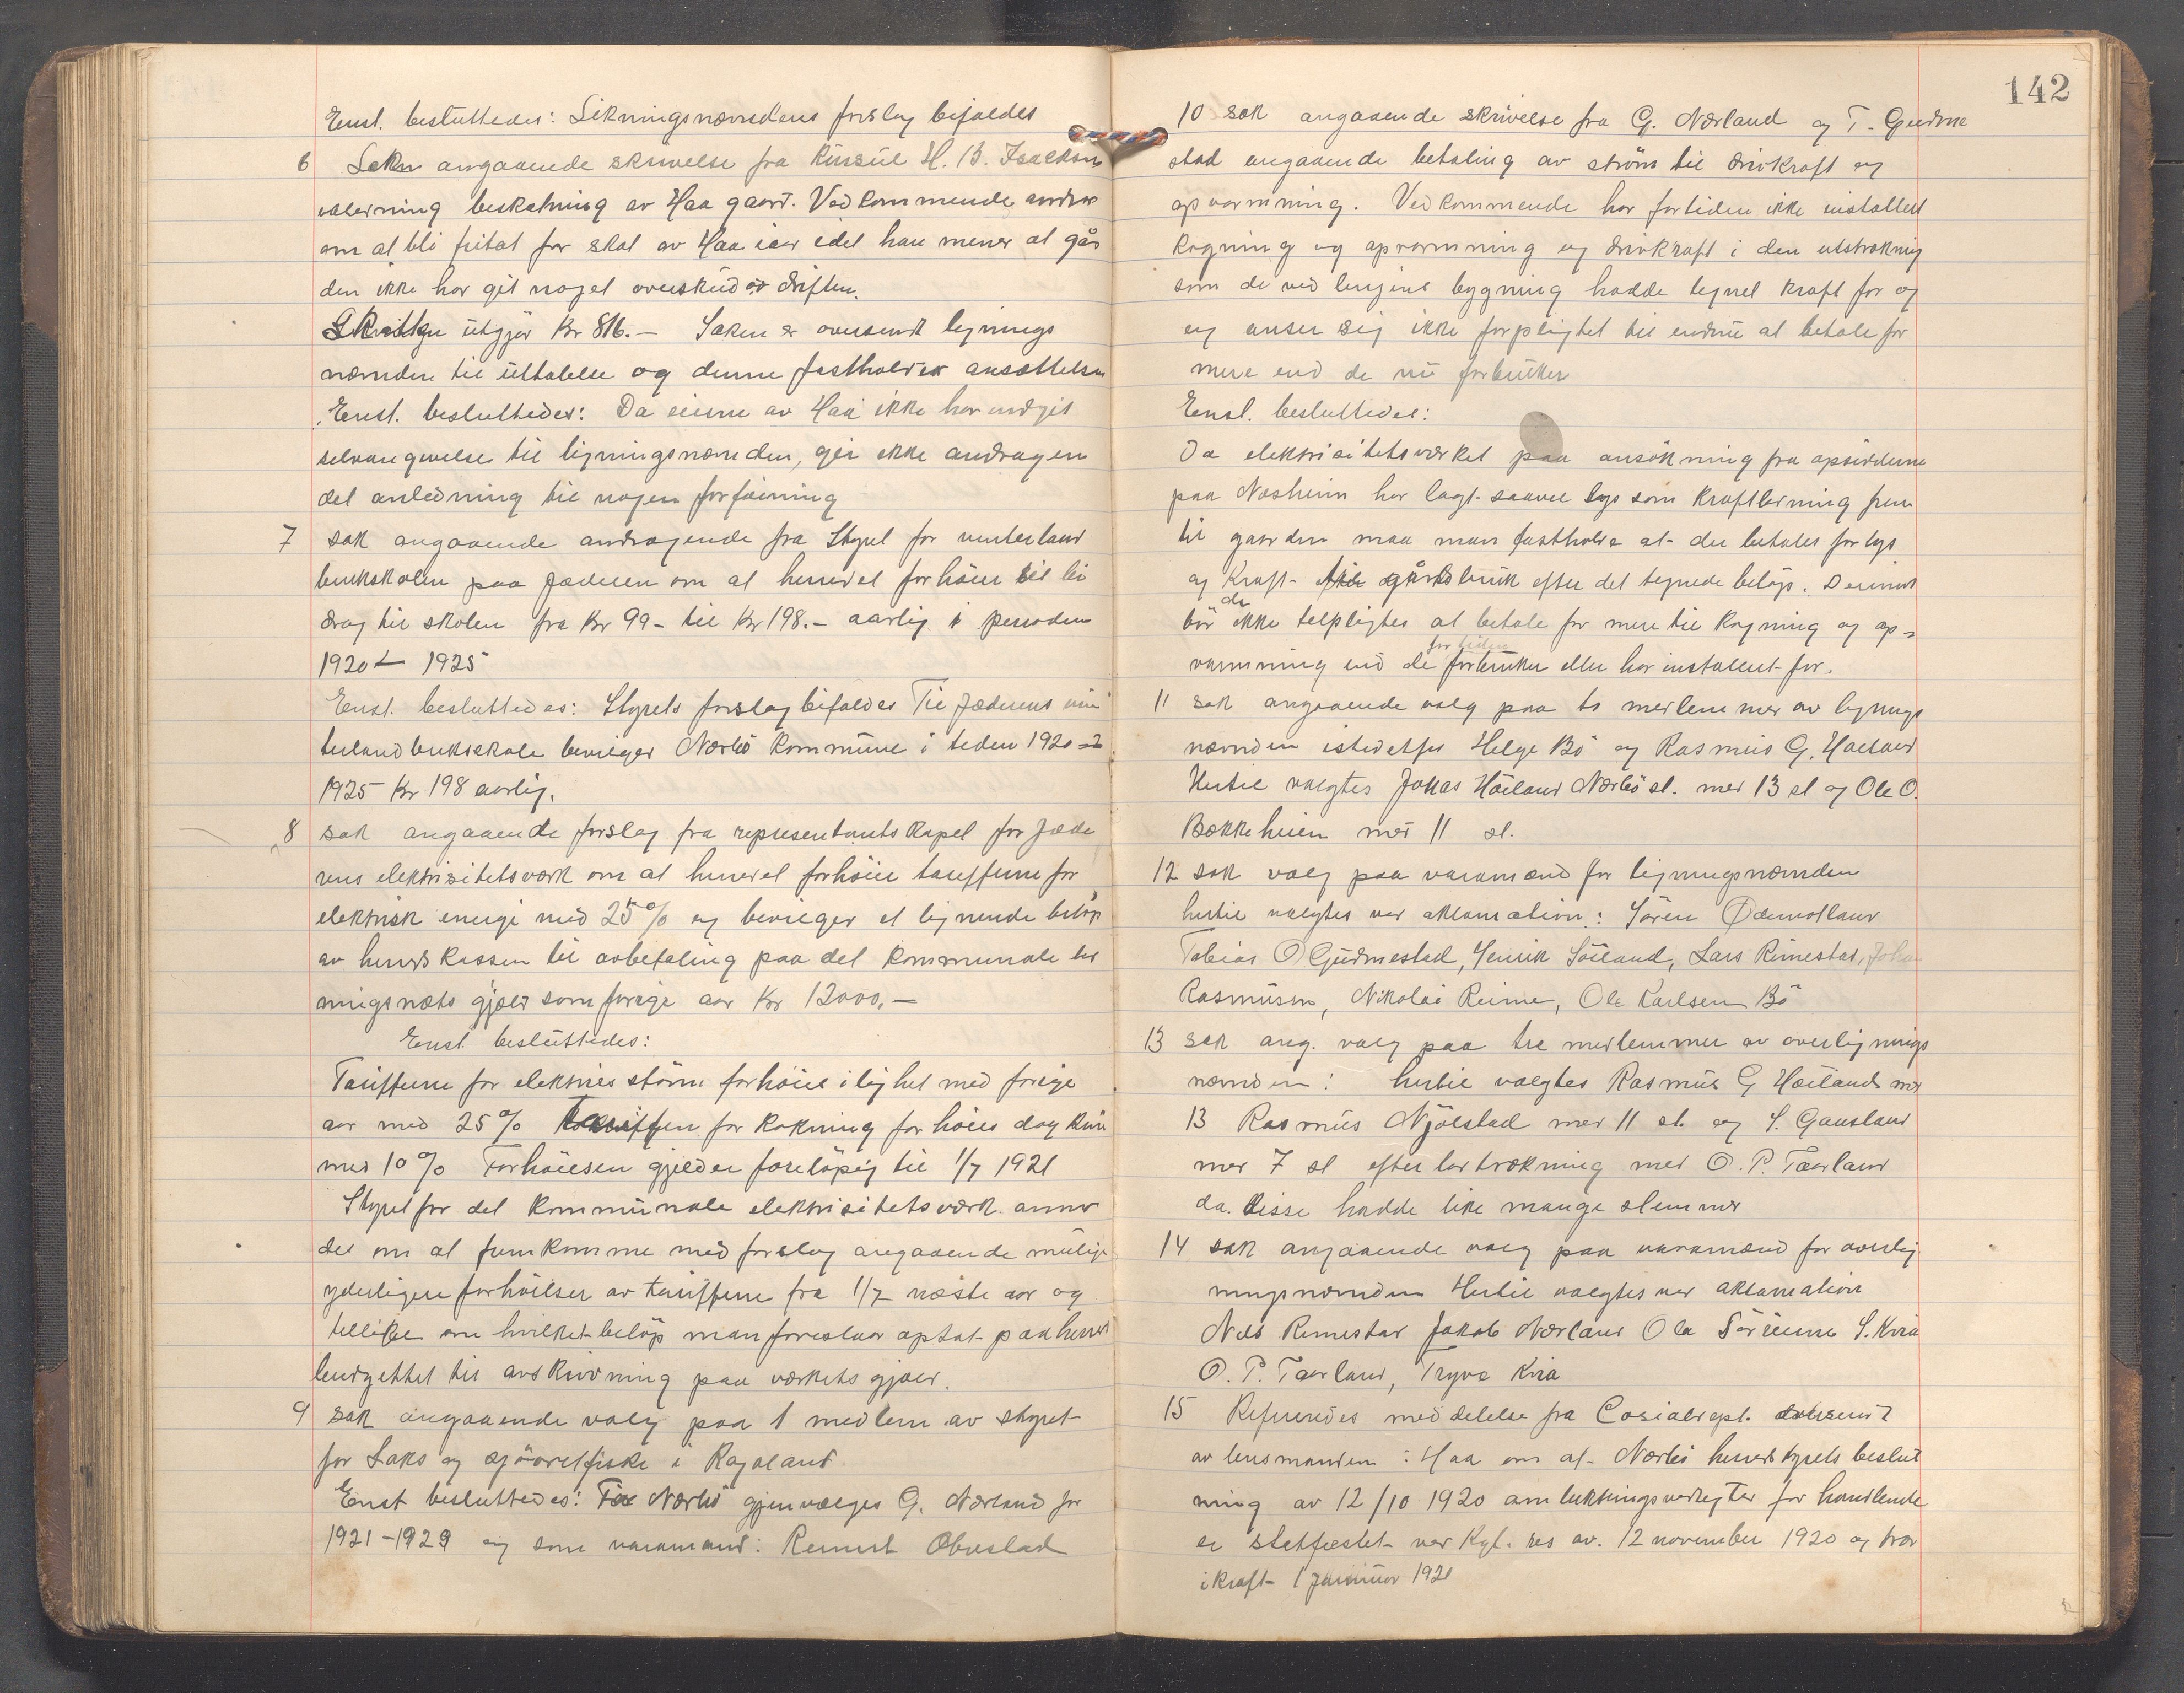 Enst. besluttedes: Likningsnævndens forslag bifaldes
6 Saken angaaende skrivelse fra Kunsul H. B. Isaksen
vedrørning beskatning av Haa gaard. Vedkommende andrar
om at bli fritat for skat av Haa iaar idet han mener at går
den ikke har git noget overskud av driften.
Skatten utgjør Kr 816.- Saken er oversendt lignings
nævnden til uttalelse og denne fastholder ansættelsen
Enst. besluttedes: Da eierne av Haa ikke har indgit
selvangivelse til ligningsnævnden, gir ikke andragen
det anledning til nogen forføining
7 sak angaaende andragende fra Styret for vinterland
brukskolen paa Jæderen om at herredet forhöier sit bi
drag til skolen fra Kr 99- til Kr 198.- aarlig i perioden
1920 - 1925
Enst. besluttedes: Styrets forslag bifaldes Til Jæderens vin
terlandbruksskole bevilger Nærbö Kommune i tiden 1920-
1925 Kr 198 aarlig.
8 sak angaaende forslag fra representantskapet for Jæde
rens elektrisitetsværk om at herredet forhöier tariffene for
elektrisk energi med 25% og bevilger et lignende belöp
av herredskassen til avbetaling paa det kommunale led
ningsnæts gjæld som forrige aar Kr 12000,-
Enst besluttedes:
Tariffene for elektrisk ström forhöies i lighet med forrige
aar med 25% Tariffen for kokning forhöies dog kun
med 10% Forhöielsen gjelder foreløpig til 1/7 1921
Styret for det kommunale elektrisitetsværk anmo
des om at fremkomme med forslag angaaende mulige
yderligere forhöielser av tariffene fra 1/7 næste aar og
tillike om hvilket belöp man foreslaar optat paa herreds
budgettet til avskrivning paa værkets gjæld.
9 sak angaaende valg paa 1 medlem av styret
for Laks og sjöørretfiske i Rogaland
Enst besluttedes: For Nærbö gjenvælges G. Nærland for
1921-1923 og som varamand: Reinert Obrestad
142
10 sak angaaende skrivelse fra G. Nærland og T. Gudme
stad angaaende betaling av ström til drivkraft og
opvarmning. Vedkommende har fortiden ikke installert
kogning og opvarmning og drivkraft i den utstrækning
som de ved linjens bygning hadde tegnet kraft for og
og anser sig ikke forpligtet til endnu at betale for
mere end de nu forbruker
Enst. besluttedes:
Da elektrisitetsværket paa ansökning fra opsidderne
paa Næsheim har lagt saavel lys som kraftledning frem
til gaarden maa man fastholde at der betales for lys
og kraft til gårdsbruk efter det tegnede belöp. Derimot
bör de ikke tilpligtes at betale for mere til kogning og op-
varmning end de for tiden forbruker eller har installert for.
11 sak angaaende valg paa to medlemmer av lignings
nævnden istedetfor Helge Bö og Rasmus G. Høiland
Hertil valgtes Jonas Höiland Nærbö st. med 13 st og Ole O.
Bækkeheien med 11 st.
12 sak valg paa varamænd for ligningsnævnden
hertil valgtes ved aklamation: Sören Ødemotland
Tobias O Gudmestad, Henrik Söiland, Lars Rimestad, Johan
Rasmusen, Nikolai Reime, Ole Karlsen Bö
13 sak ang. valg paa tre medlemmer av overlignings
nævnden: hertil valgtes Rasmus G Høiland med
13 Rasmus Njölstad med 11 st. og S. Gausland
med 7 st efter lodtrækning med O. P. Taarland
da disse hadde like mange stemmer
14 sak angaaende valg paa varamænd for overlig
ningsnævnden Hertil valgtes ved aklamation
Nils Rimestad Jakob Nærland Ola Söreime S. Kvia
O. P. Taarland, Trygve Kvia
15 Refereredes meddelelse fra Cosialdept. oversendt
av lensmanden i Haa om at Nærbö herredstyrets beslut
ning av 12/10 1920 om lukningsvedtægter for handlende
er statfæstet ved Kgl. res av. 12 november 1920 og trær
i kraft 1 januar 1921